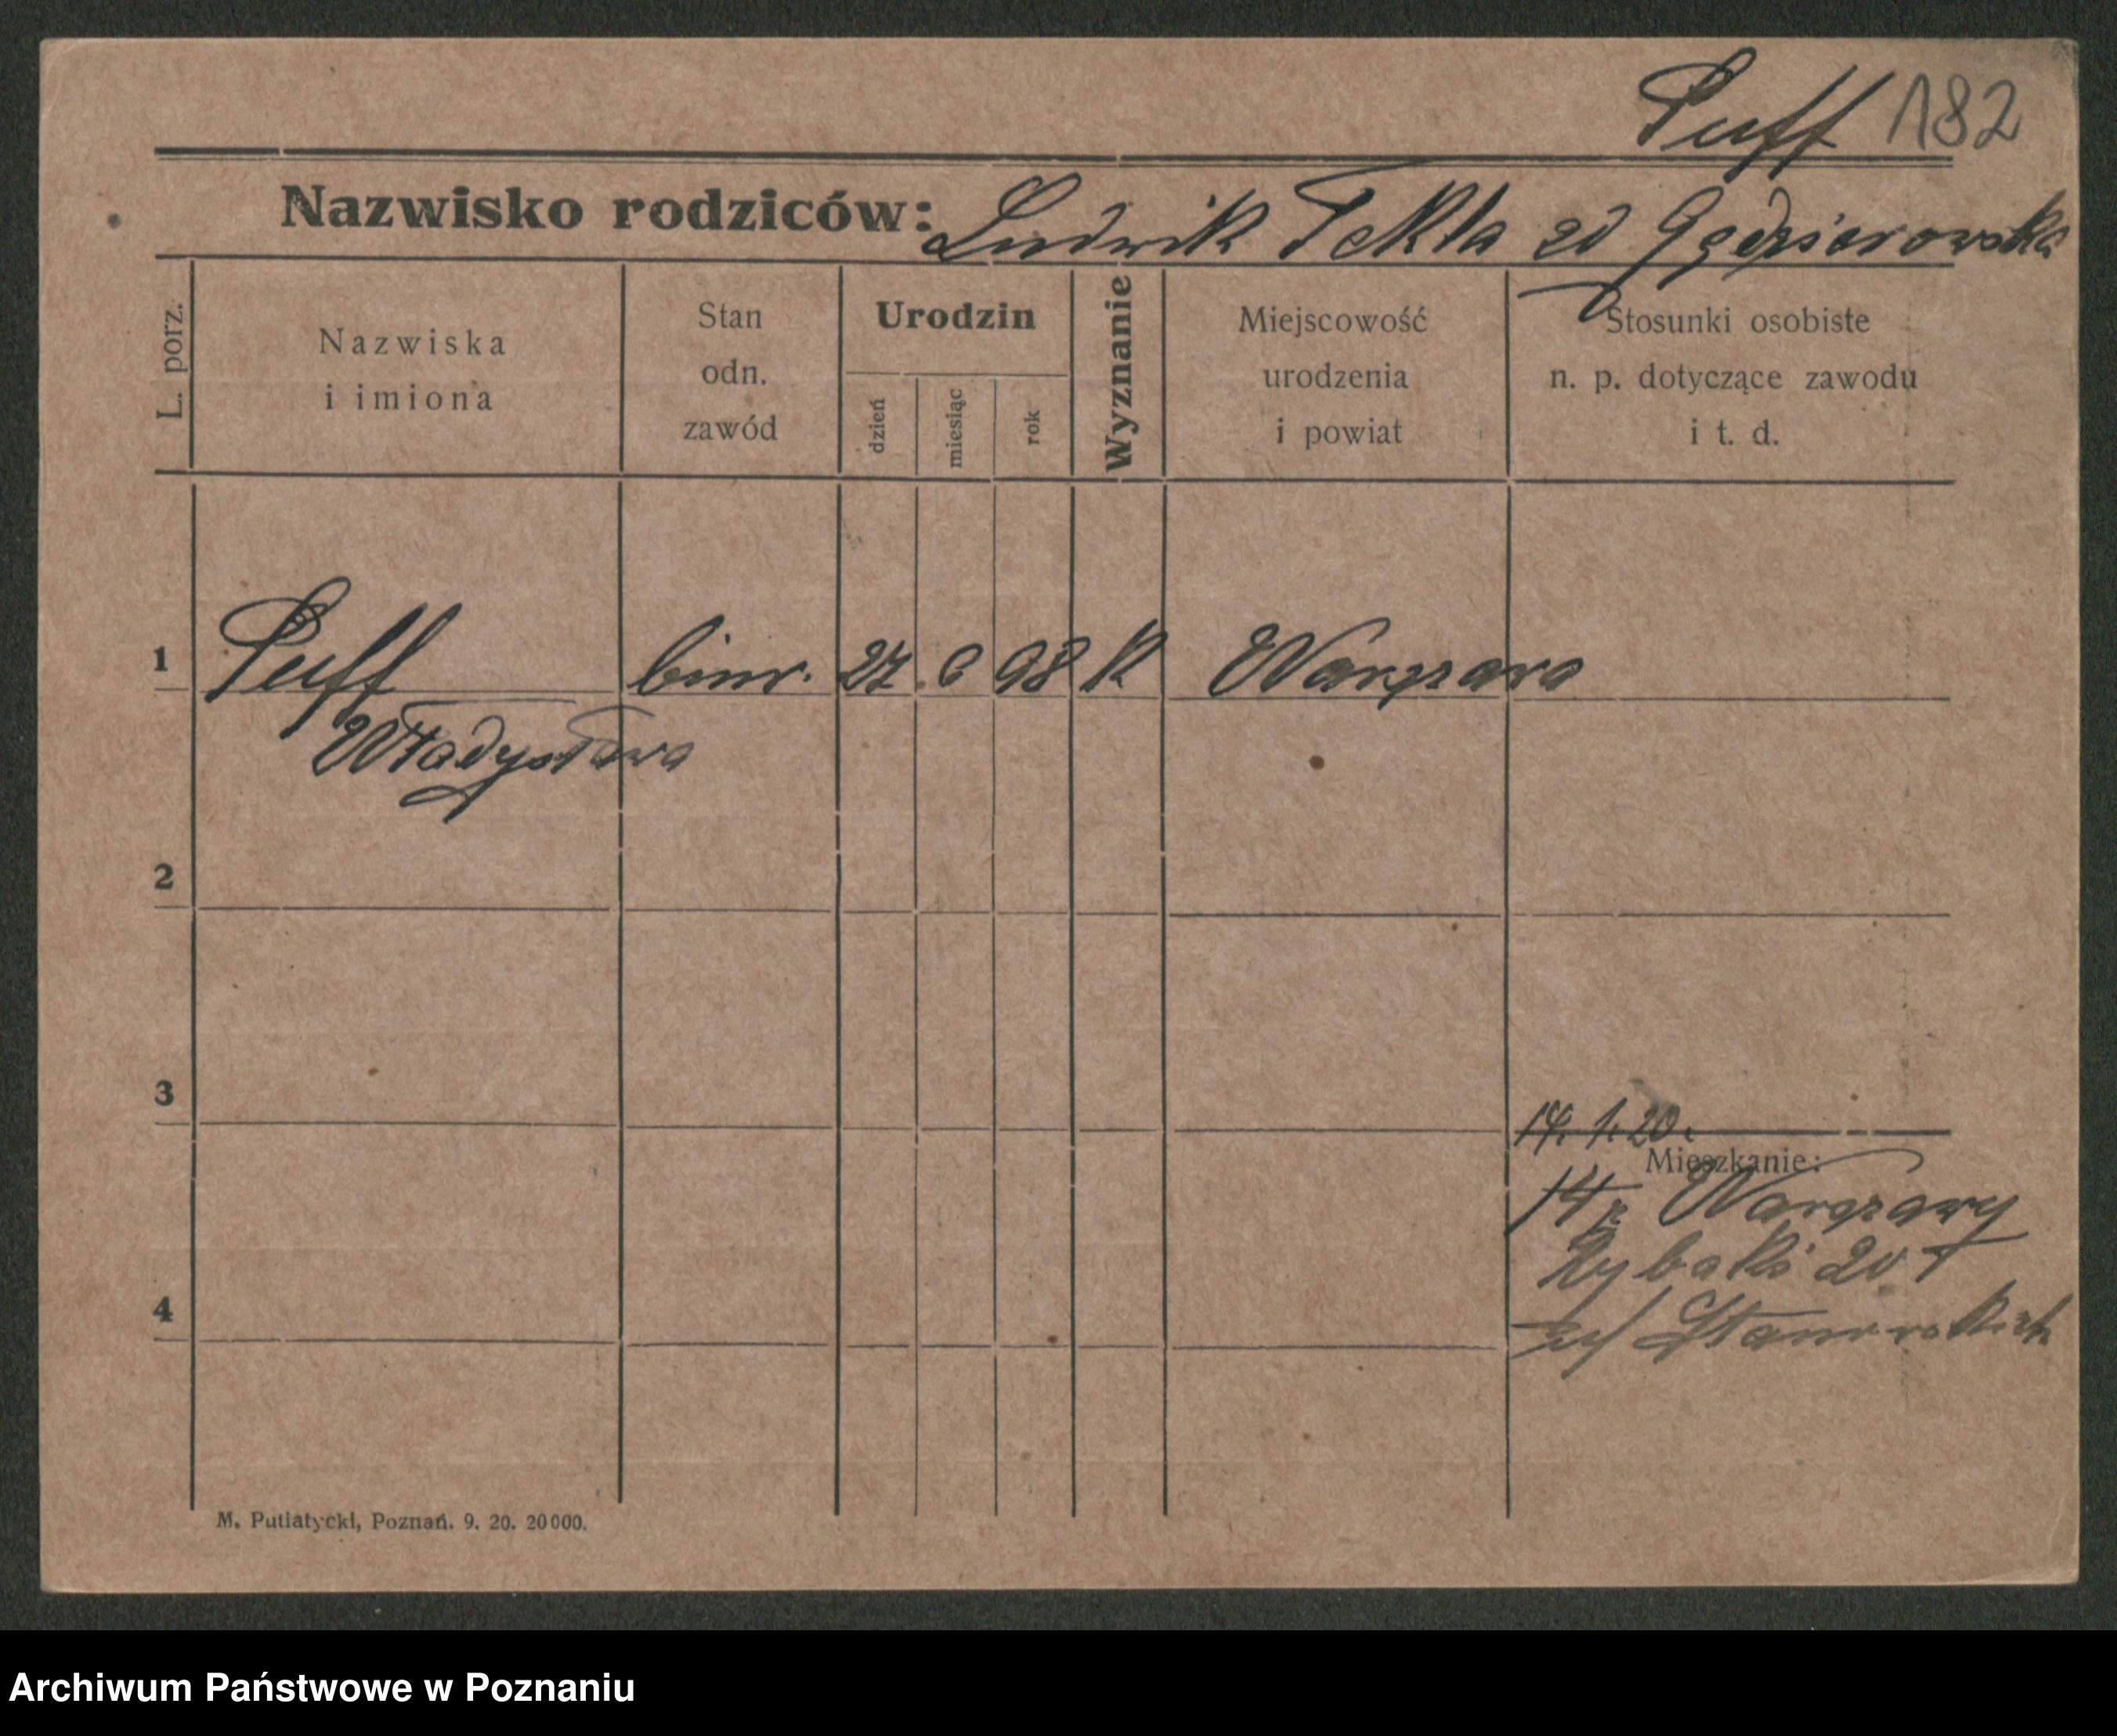 Puff 182
Nazwisko rodziców: Ludwik Tekla zd Gąsiorowska
L. porz.
Nazwiska
i imiona
Stan
odn.
zawód
Urodzin
dzień
miesiąc
rok
Wyznanie
Miejscowość
urodzenia
i powiat
Stosunki osobiste
n. p. dotyczące zawodu
i t. d.
1 Puff biur. 27 6 98 K Warszawa
Władysława
2
3
14. 1. 20.
Mieszkanie:
14 z Warszawy
Rybaki 20
4
M. Putiatycki, Poznań. 9. 20. 20000.
Archiwum Państwowe w Poznaniu